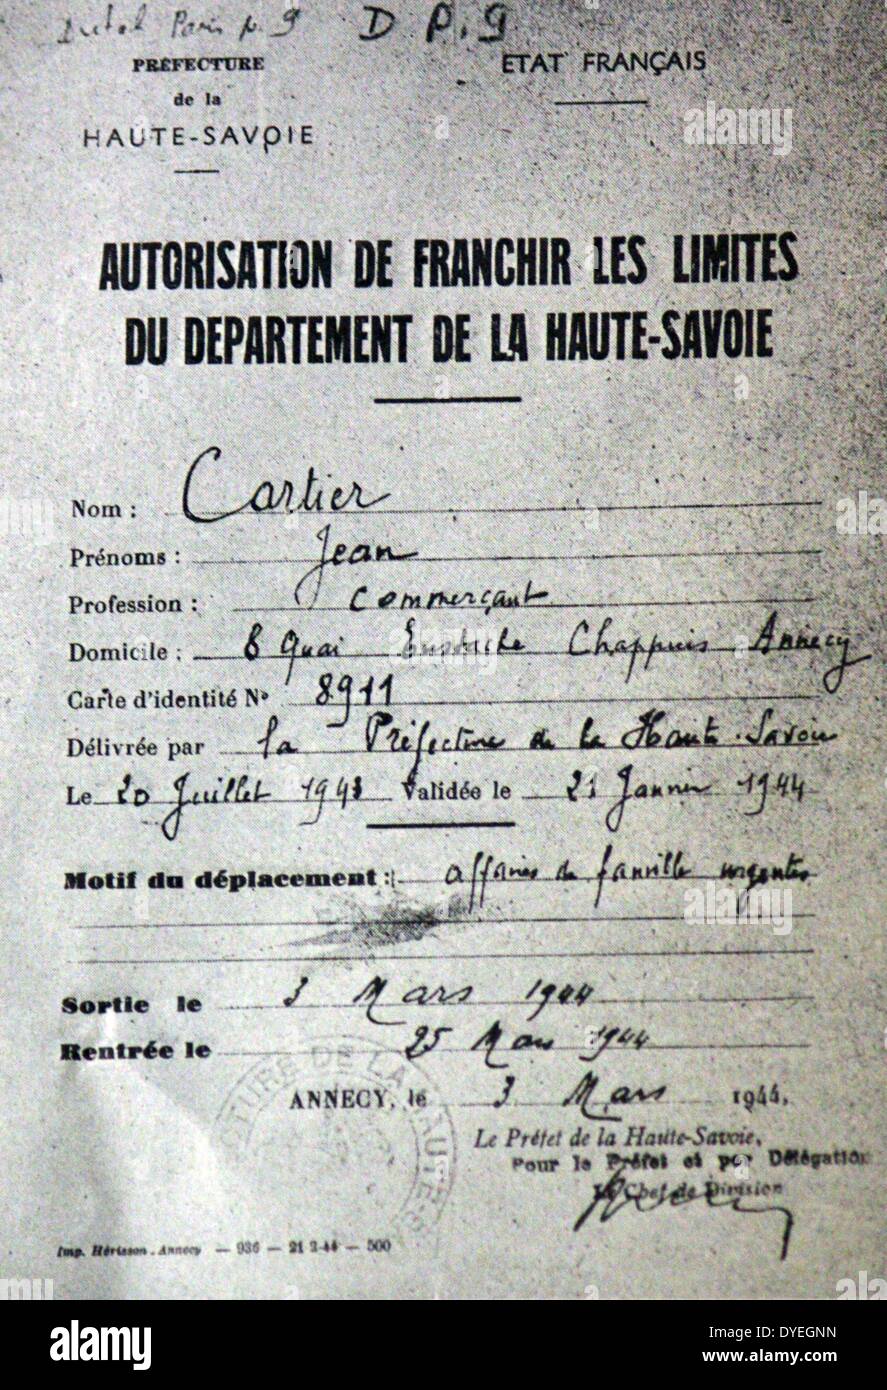 Paris p. 9 D P. 9
PRÉFECTURE
de la
HAUTE-SAVOIE
ETAT FRANÇAIS
AUTORISATION DE FRANCHIR LES LIMITES
DU DEPARTEMENT DE LA HAUTE-SAVOIE
Nom : Cartier
Prénoms : Jean
Profession : Commerçant
Domicile : 8 Quai Eustache Chappuis, Annecy
Carte d'identité N° 8911
Délivrée par la Préfecture de la Haute-Savoie
Le 20 Juillet 1943 Validée le 21 Janvier 1944
Motif du déplacement : affaires de famille urgentes
Sortie le 3 Mars 1944
Rentrée le 25 Mars 1944
ANNECY, le 3 Mars 1944.
Le Préfet de la Haute-Savoie,
Pour le Préfet et par Délégation
Le Chef de Division
Imp. Hérisson. Annecy — 936 — 21 2-44 — 500
alamy
alamy stock photo
DYEGNN
www.alamy.com